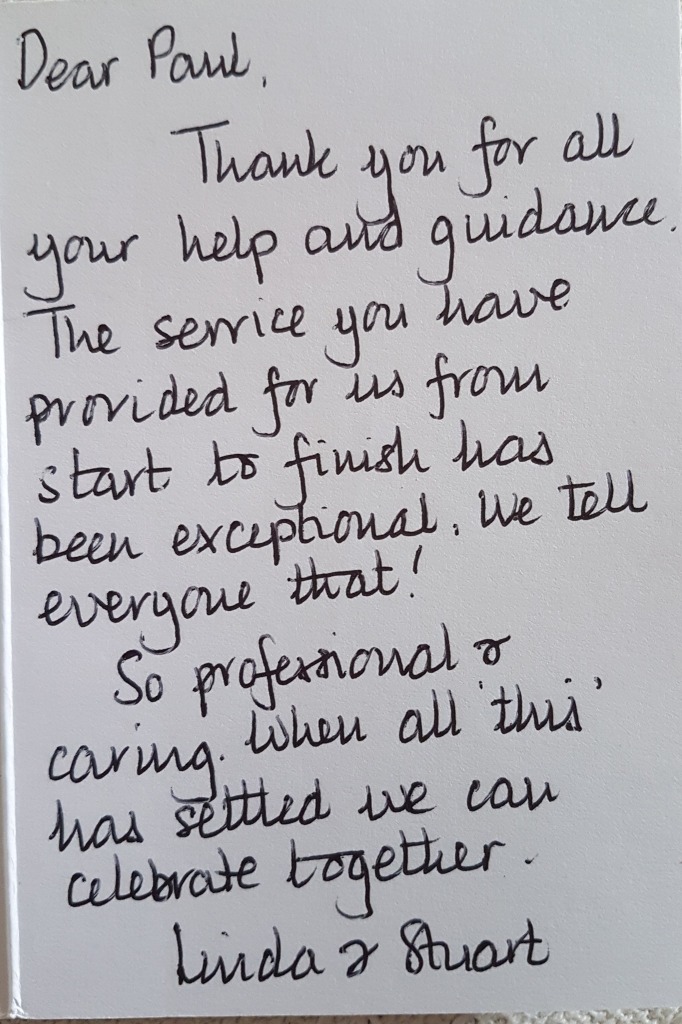 Dear Paul,
Thank you for all
your help and guidance.
The service you have
provided for us from
start to finish has
been exceptional. We tell
everyone that!
So professional &
caring. When all 'this'
has settled we can
celebrate together.
Linda & Stuart